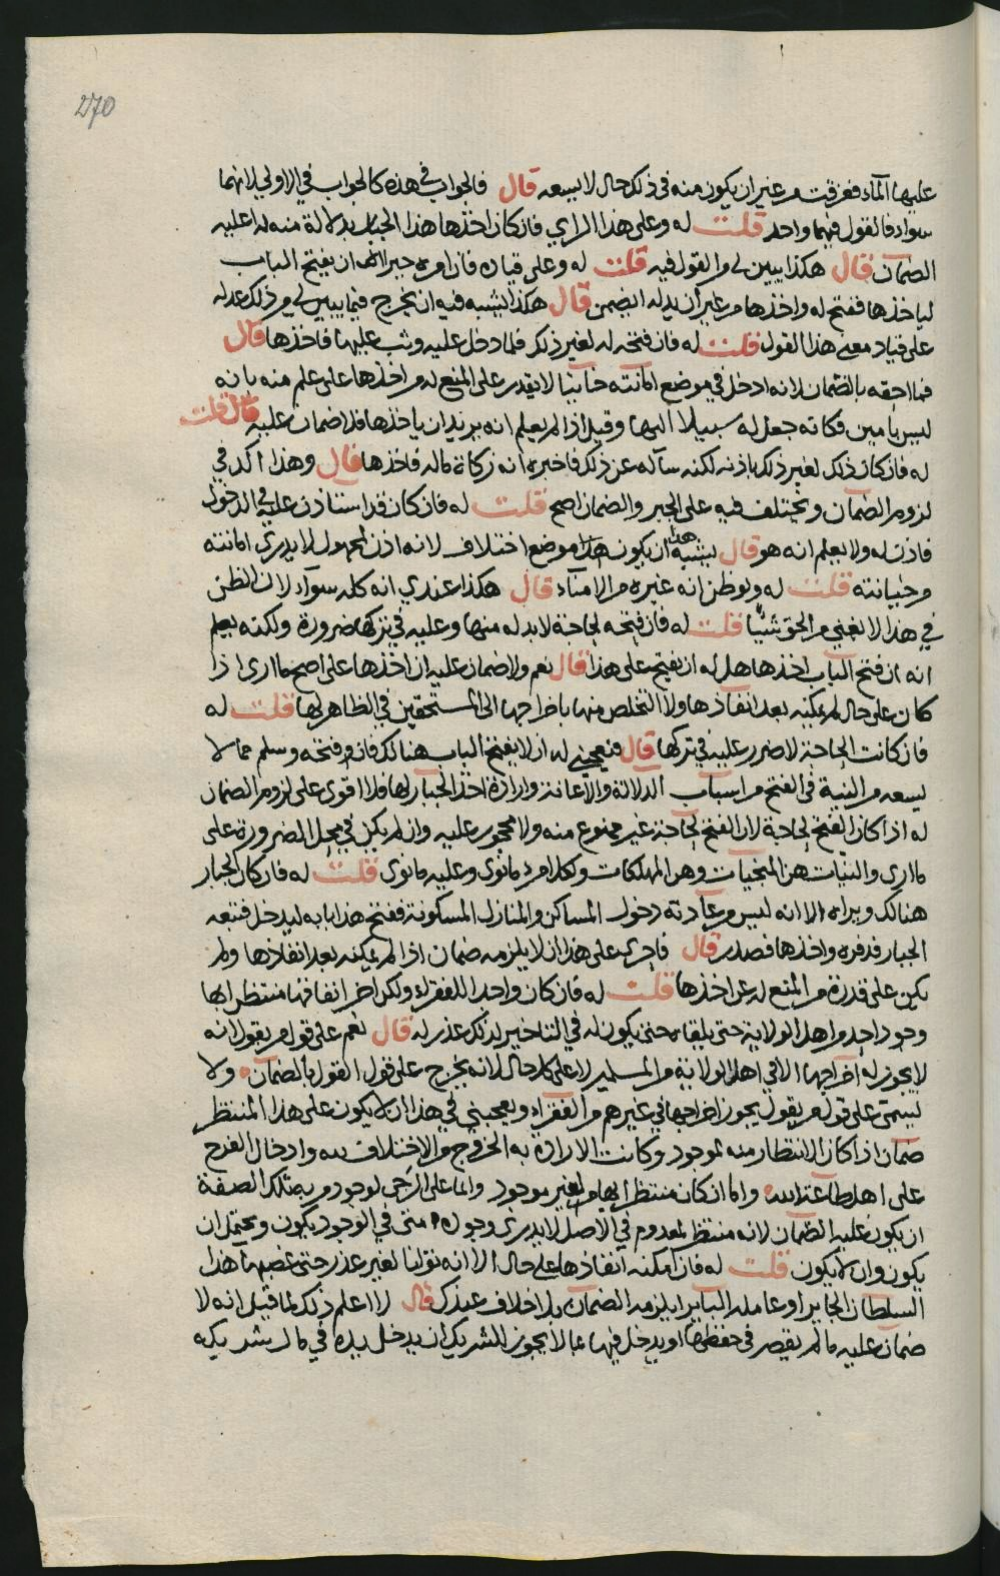 270
عليها الماء فغرقت من غير ان يكون منه في ذلك حال لا يسعه قال فالجواب في هذه كالجواب في الاولى لانهما
سواء فالقول فيهما واحد قلت له وعلى هذا الراي فان كان اخذها هذا الجبار بدلالة منه له اعليه
الضمان قال هكذا يبين لي من القول فيه قلت له وعلى قياده فان امره جبرا ان يفتح الباب
لياخذها ففتح له واخذها من غير ان يدله ايضمن قال هكذا يشبه فيه ان يخرج فيما يبين لي من ذلك عدله
على قياد معنى هذا القول قلت له فان فتحه له لغير ذلك فلما دخل عليه وثب عليها فاخذها قال
فما احقه بالضمان لانه ادخل في موضع امانته خاينا لا يقدر على المنع له من اخذها على علم منه بانه
ليس بامين فكانه جعل له سبيلا اليها وقيل اذا لم يعلم انه يريد ان ياخذها فلا ضمان عليه قال قلت
له فان كان ذلك لغير ذلك باذنه لكنه سآله عن ذلك فاخبره انه زكاة ماله فاخذها قال وهذا اكد في
لزوم الضمان ويختلف فيه على الجبر والضمان اصح قلت له فان كان قد استاذن عليه في الدخول
فاذن له ولا يعلم انه هو قال يشبه هذا ان يكون موضع اختلاف لانه اذن لمجهول لا يدري امانته
من خيانته قلت له ولو ظن انه غيره من الامناء قال هكذا عندي انه كله سوآء لان الظن
في هذا لا يغني من الحق شيئا قلت له فان فتحه لحاجة لا بد له منها وعليه في تركها ضرورة ولكنه يعلم
انه ان فتح الباب اخذها هل له ان يفتح على هذا قال نعم ولا ضمان عليه ان اخذها على اصح ما ارى اذا
كان على حال لم يمكنه بعد انفاذها ولا التخلص منها باخراجها الى المستحقين في الظاهر لها قلت له
فان كانت الحاجة لا ضرر عليه في تركها قال فيعجبني له ان لا يفتح الباب هنالك فان هو فتحه وسلم مما لا
يسعه من النية في الفتح من اسباب الدلالة والاعانة وارادة اخذ الجبار لها فلا اقوى على لزوم الضمان
له اذا كان الفتح لحاجة لان الفتح لحاجة غير ممنوع منه ولا محجور عليه وان لم يكن في محل الضرورة على
ما ارى والنيات هن المنجيات وهن المهلكات ولكل امرء ما نوى وعليه ما نوى قلت له فان كان الجبار
هنالك ويراه الا انه ليس من عادته دخول المساكن والمنازل المسكونة ففتح هذا بابه ليدخل فتبعه
الجبار فدفره واخذها فصدر قال فاحرى على هذا ان لا يلزمه ضمان اذا لم يمكنه بعد انفاذها ولم
يكن على قدرة من المنع له عن اخذها قلت له فان كان واجدا للفقراء ولكن اخر انفاذها منتظرا بها
وجود احد من اهل الولاية حتى يلقاه حتى يكون له في التاخير بذلك عذر له قال نعم على قول من يقول انه
لا يجوز له اخراجها الا في اهل الولاية من المسلمين لا على كل حال لانه يخرج على قول القول بالضمان ولا
يسمى على قول من يقول يجوز اخراجها في غيرهم من الفقراء ويعجبني في هذا ان لا يكون على هذا المنتظر
ضمان اذا كان الانتظار منه لموجود وكانت الارادة به الخروج من الاختلاف لله وادخال الفرح
على اهل طاعة الله واما ان كان منتظرا بها من لغير موجود وانما على الرجى لوجود من بتلك الصفة
ان يكون عليه الضمان لانه منتظر لمعدوم في الاصل لا يدري وجوده متى في الوجود يكون ويحتمل ان
يكون وان لا يكون قلت له فان امكنه انفاذها على حال الا انه توانا لغير عذر حتى غصبها هذا
السلطان الجاير او عامله الباير ايلزمه الضمان بلا اختلاف عندك قال لا اعلم ذلك لما قيل انه لا
ضمان عليه ما لم يقصر في حفظها او يدخل فيها بما لا يجوز للشريك ان يدخل بيده في مال شريكه